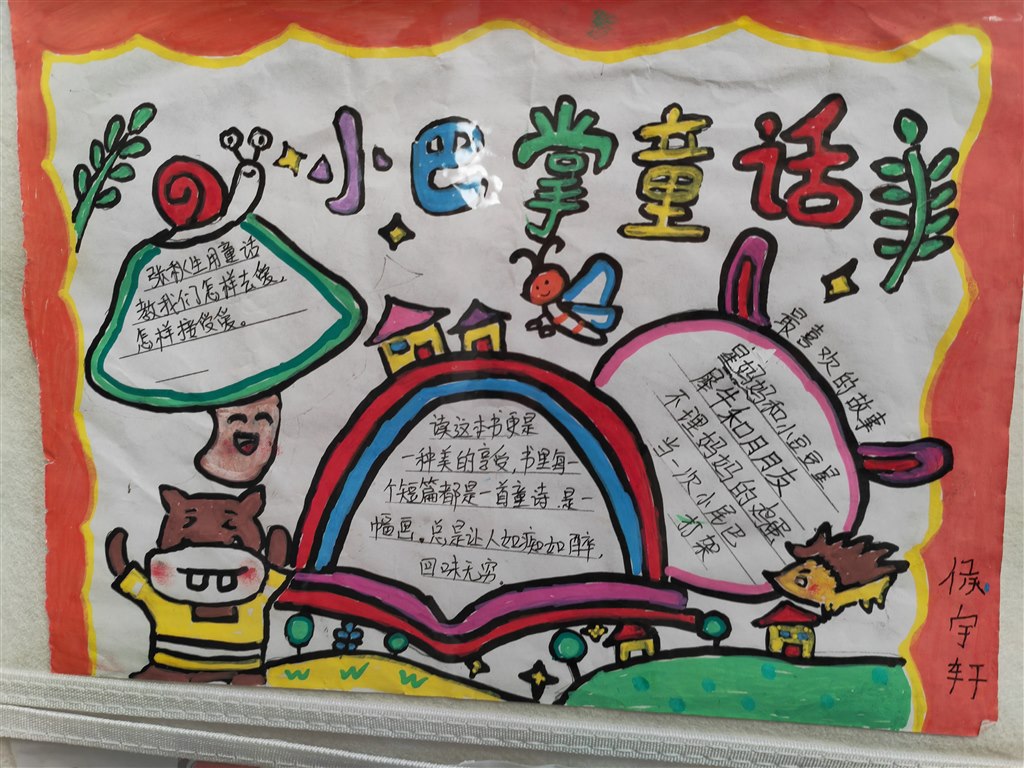 小巴掌童话
张秋生用童话
教我们怎样去爱,
怎样接受爱。
读这本书更是
一种美的享受,书里每一
个短篇都是一首童诗.是一
幅画。总是让人如痴如醉,
回味无穷.
最喜欢的故事
星妈妈和小豆豆星
犀牛和月月友
不理妈妈的鸡蛋
当一次小尾巴
打架
侯宇轩